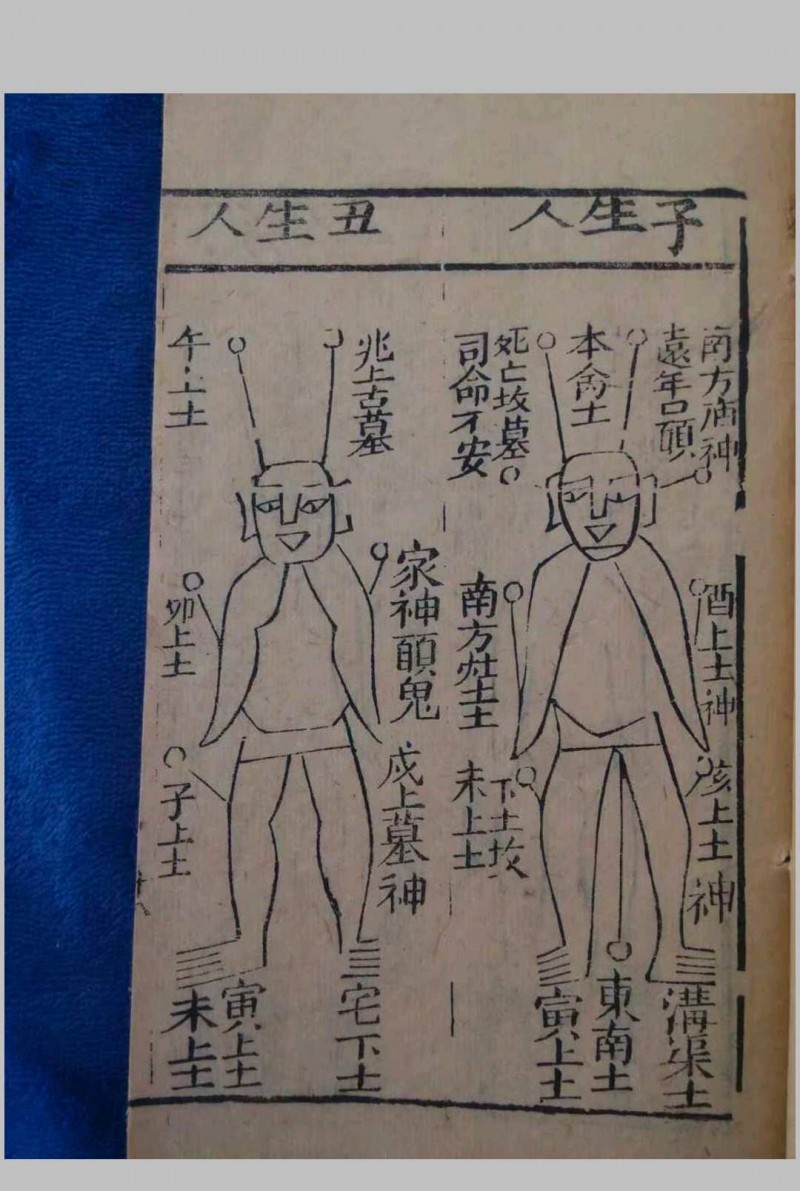 子生人
南方庙神
遠年口願
本命土
死亡故墓
司命不安
酉上土神
南方灶土
亥上土神
下土故
未上土
溝渠土
東南土
寅上土
丑生人
兆上古墓
午上土
家神願鬼
卯上土
戍上墓神
子上土
宅下土
寅上土
未上土
十八